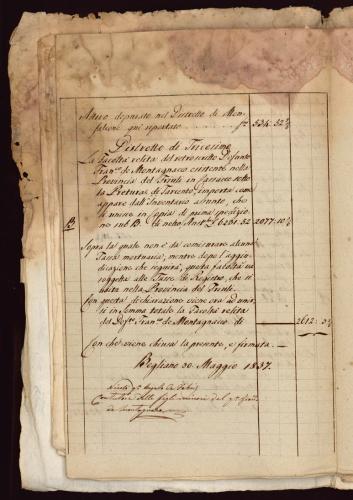 Attivo depurato nel Distretto di Mon-
falcone qui reportato f. 534: 52
Distretto di Tricesimo
La facoltà relita del retroscritto Defunto
Fran.co de Montagnaco esistente nella
Provincia del Friuli in sotto
la Pretura di Tarcento importa com
appare dall'Inventario assunto, che
si unisce in Copia di prima
B. sub B. in netto 6231.52 2077:10
Sopra la quale non è da comisurare alcuna
Tassa mortuaria, mentre dopo l'aggiu-
dicazione che seguirà, questa facoltà va
soggetta alle Tasse di Registro, che si
nella Provincia del Friuli.
Con questa dichiarazione viene ora ad unir-
si in somma totale la Facoltà relita
del Def.to Fran.co de Montagnaco di 2612: 3
Con che viene chiusa la presente, e firmata.
Begliano 30. Maggio 1837.
Curatore delli figli minori del q.m
de Montagnaco